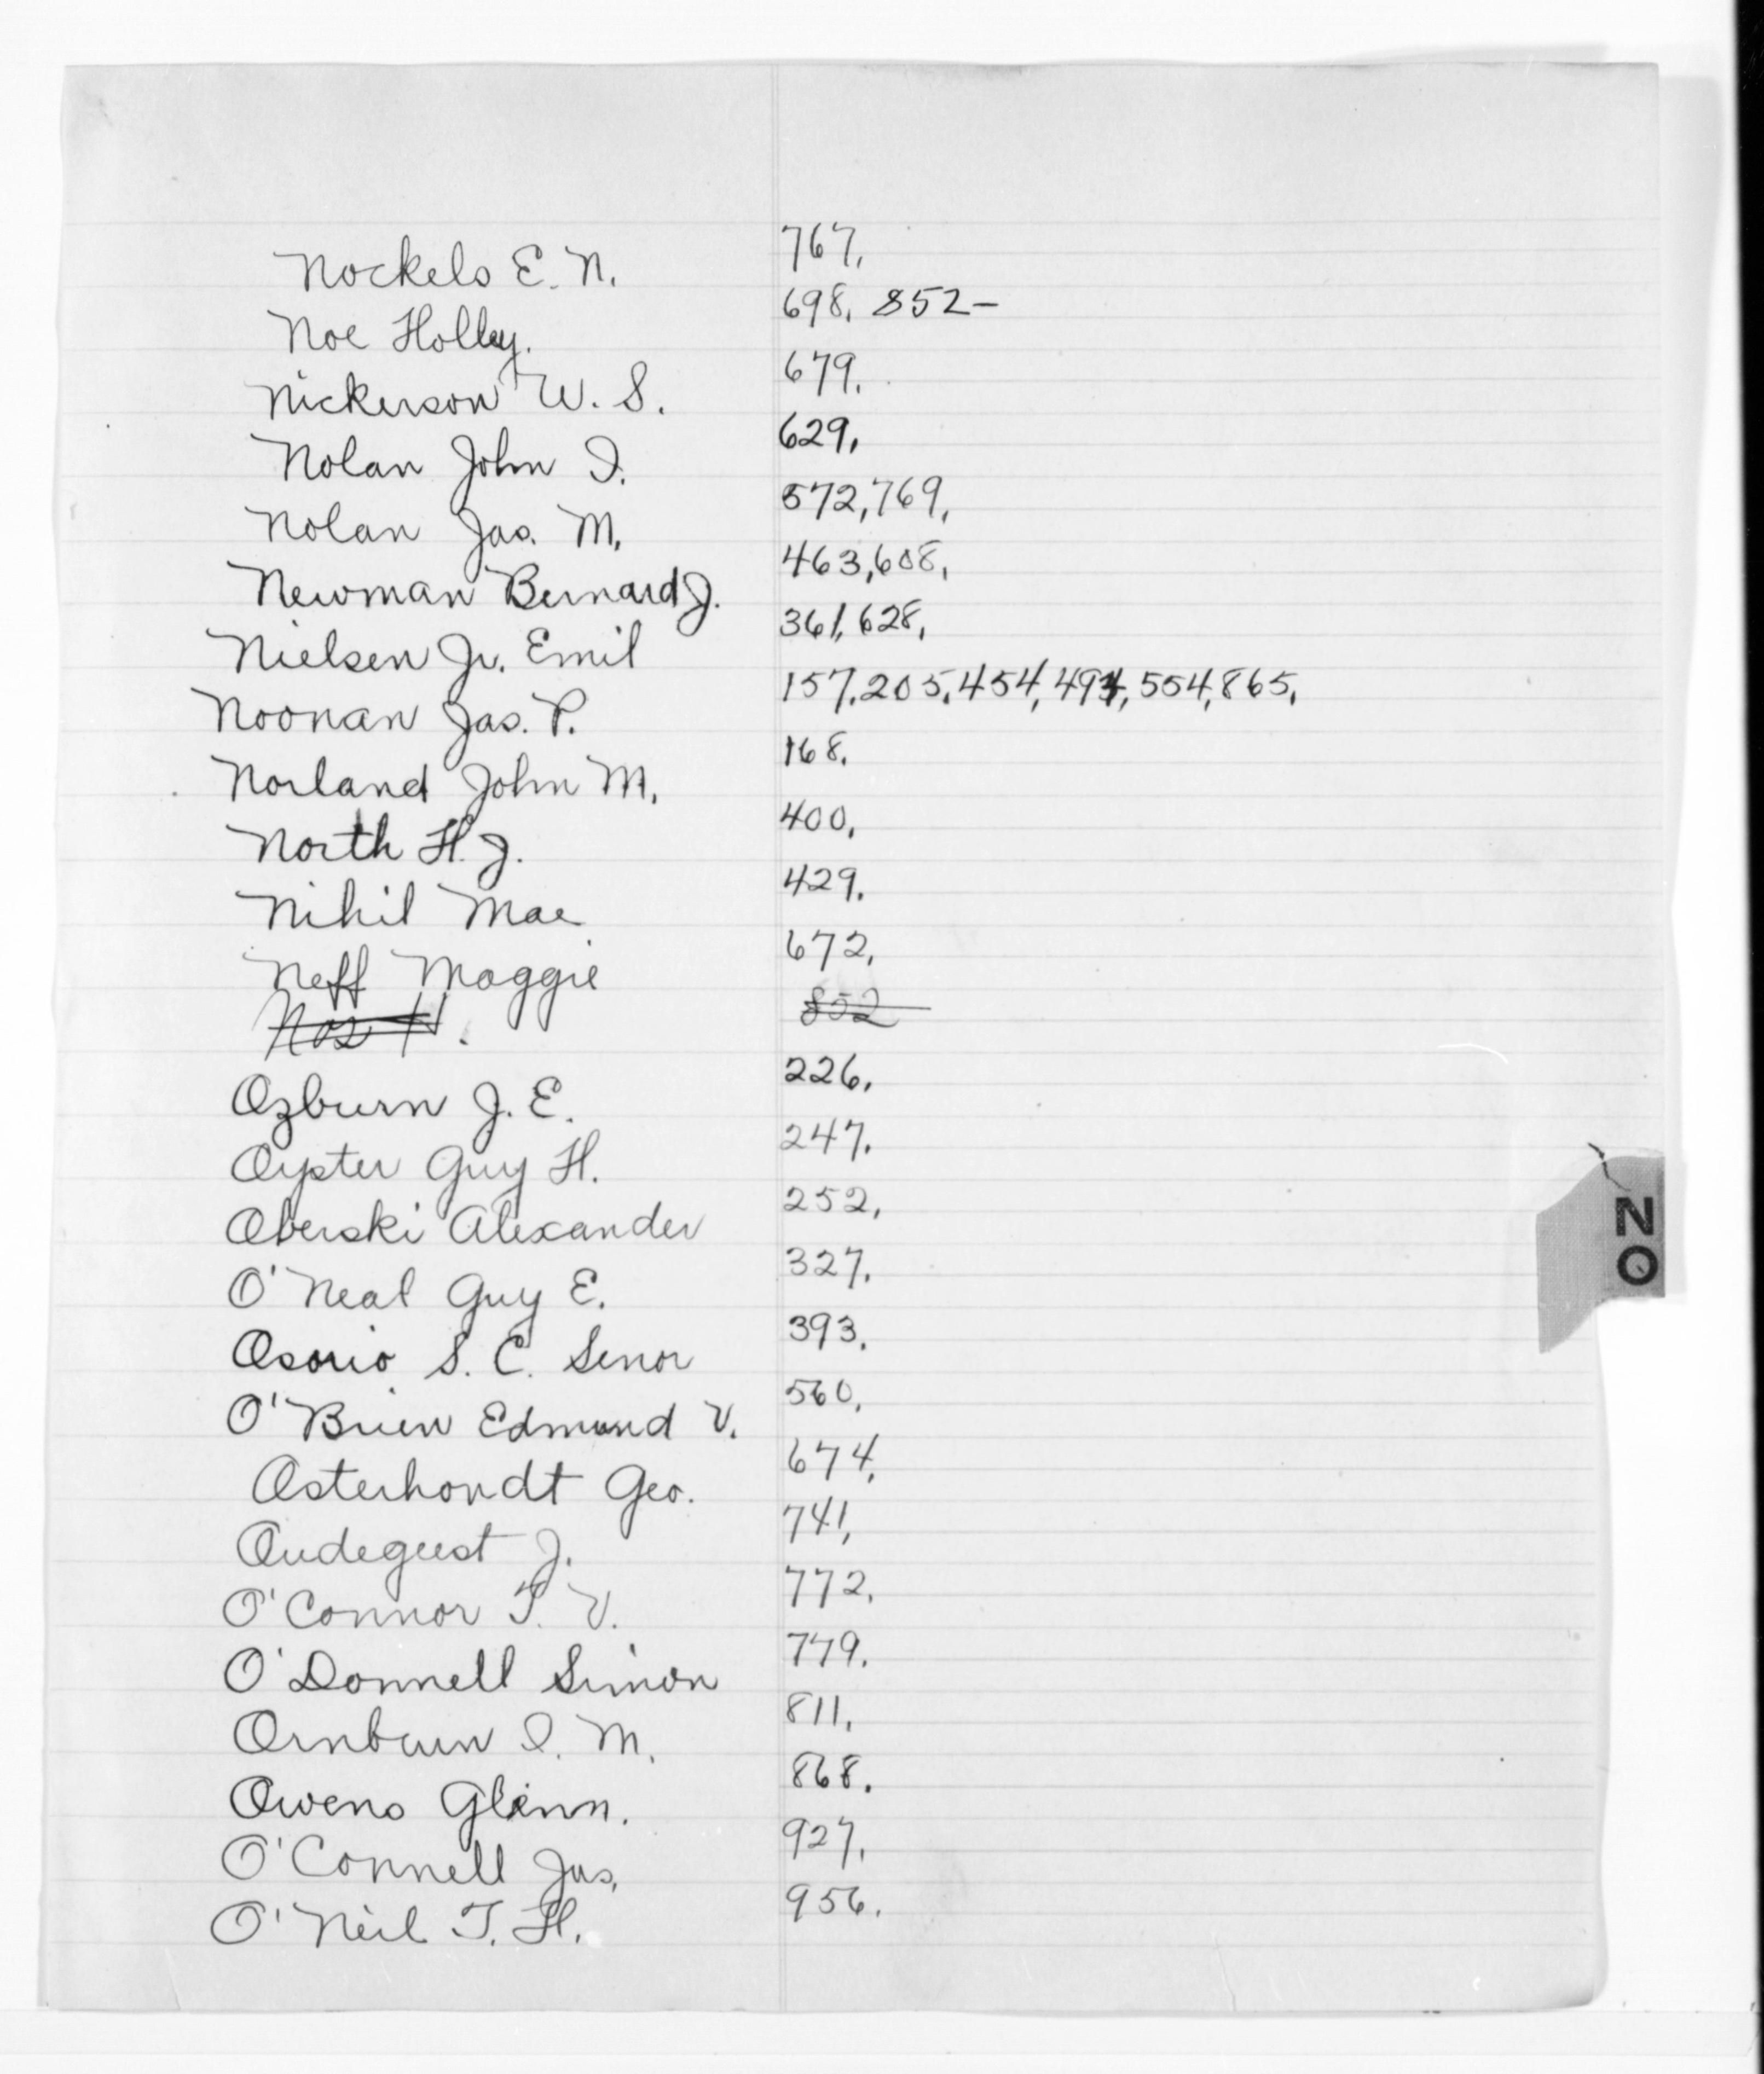 Nockels E. N. 767,
Noe Holley. 698, 852-
Nickerson W. S. 679.
Nolan John I. 629,
Nolan Jas. M. 572, 769,
Newman Bernard J. 463, 608,
Nielsen Jr. Emil 361, 628,
Noonan Jas. P. 157, 205, 454, 494, 554, 865,
Norland John M. 168.
North H. J. 400,
Nihil Mae 429.
Neff Maggie 672,
Noe H. 852
Ozburn J. E. 226,
Oyster Guy H. 247.
Oberski Alexander 252,
O'Neal Guy E. 327.
Osorio S. C. Senor 393.
O'Brien Edmund V. 560,
Osterhondt Geo. 674,
Oudegeest J. 741,
O'Connor T. V. 772.
O'Donnell Simon 779.
Ornburn I. M. 811,
Owens Glenn. 868.
O'Connell Jas. 927,
O'Neil T. H. 956.
N
O